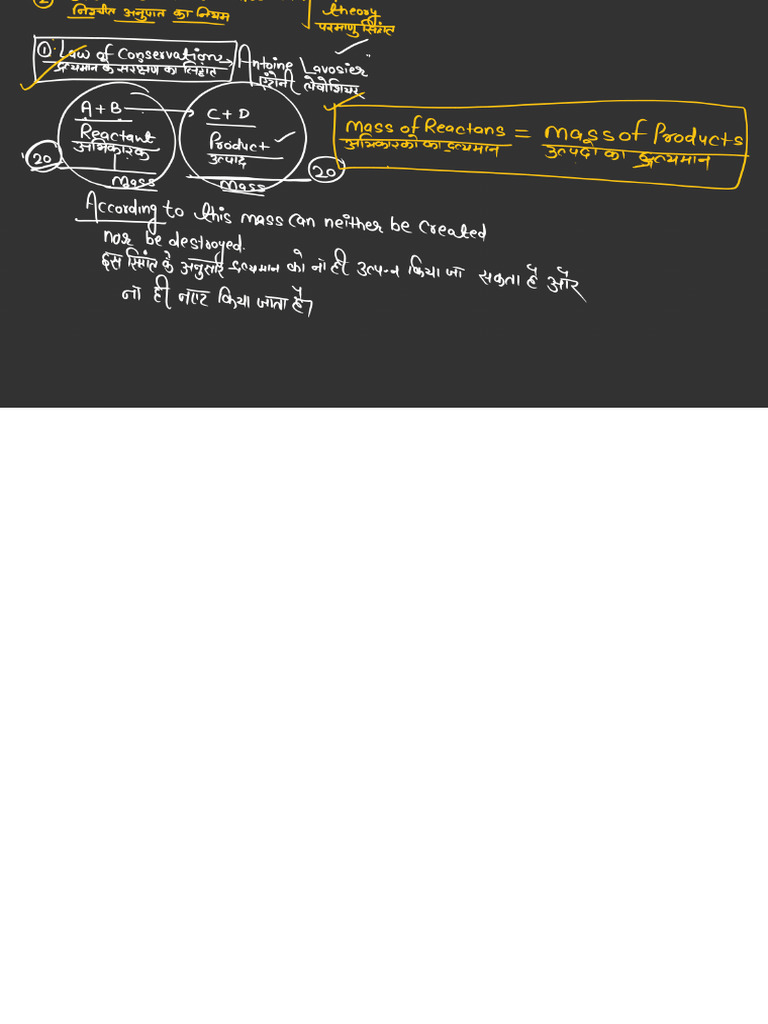 ②
निश्चित अनुपात का नियम
theory
परमाणु सिद्धांत
① Law of Conservation
द्रव्यमान के संरक्षण का सिद्धांत
Antoine Lavosier
एंटोनी लेवोशियर
A + B → C + D
Reactant
अभिकारक
Product
उत्पाद
20
Mass
Mass
20
Mass of Reactans = Mass of Products
अभिकारको का द्रव्यमान
उत्पादो का द्रव्यमान
According to this mass can neither be created
nor be destroyed.
इस सिद्धांत के अनुसार द्रव्यमान को ना ही उत्पन्न किया जा सकता है और
ना ही नष्ट किया जाता है।